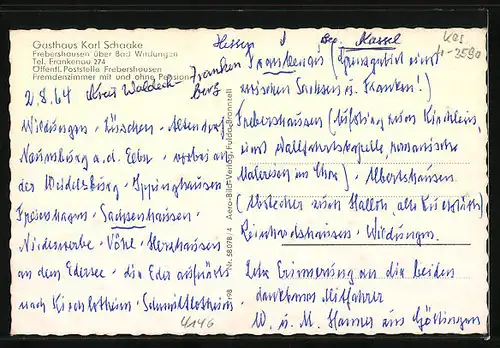 Gasthaus Karl Schaake
Frebershausen über Bad Wildungen
Tel. Frankenau 274
Öffentl. Poststelle Frebershausen
Fremdenzimmer mit und ohne Pension
Hessen
Bez. Kassel
2.8.64
Kreis Waldeck-Frankenberg
Wildungen - Züschen - Altendorf
Naumburg a.d. Eder - vorbei an
der Weidelsburg - Ippinghausen
Freienhagen - Sachsenhausen -
Niederwerbe - Vöhl - Herzhausen
an dem Edersee - die Eder aufwärts
nach Kirchlotheim - Schmittlotheim -
Aero-Bild-Verlag, Fulda-Bronnzell
Nr. 58078/4
Frankenau (Grenzgebiet einst
zwischen Sachsen u. Franken!)
Frebershausen (Aufstieg zum Kirchlein,
einst Wallfahrtskapelle, romanische
Malereien im Chor) - Albertshausen
(Abstecher zum
Reinhardshausen - Wildungen.
Zur Erinnerung an die beiden
dankbaren Mitfahrer
W. u. M. Hamer aus Göttingen
4146